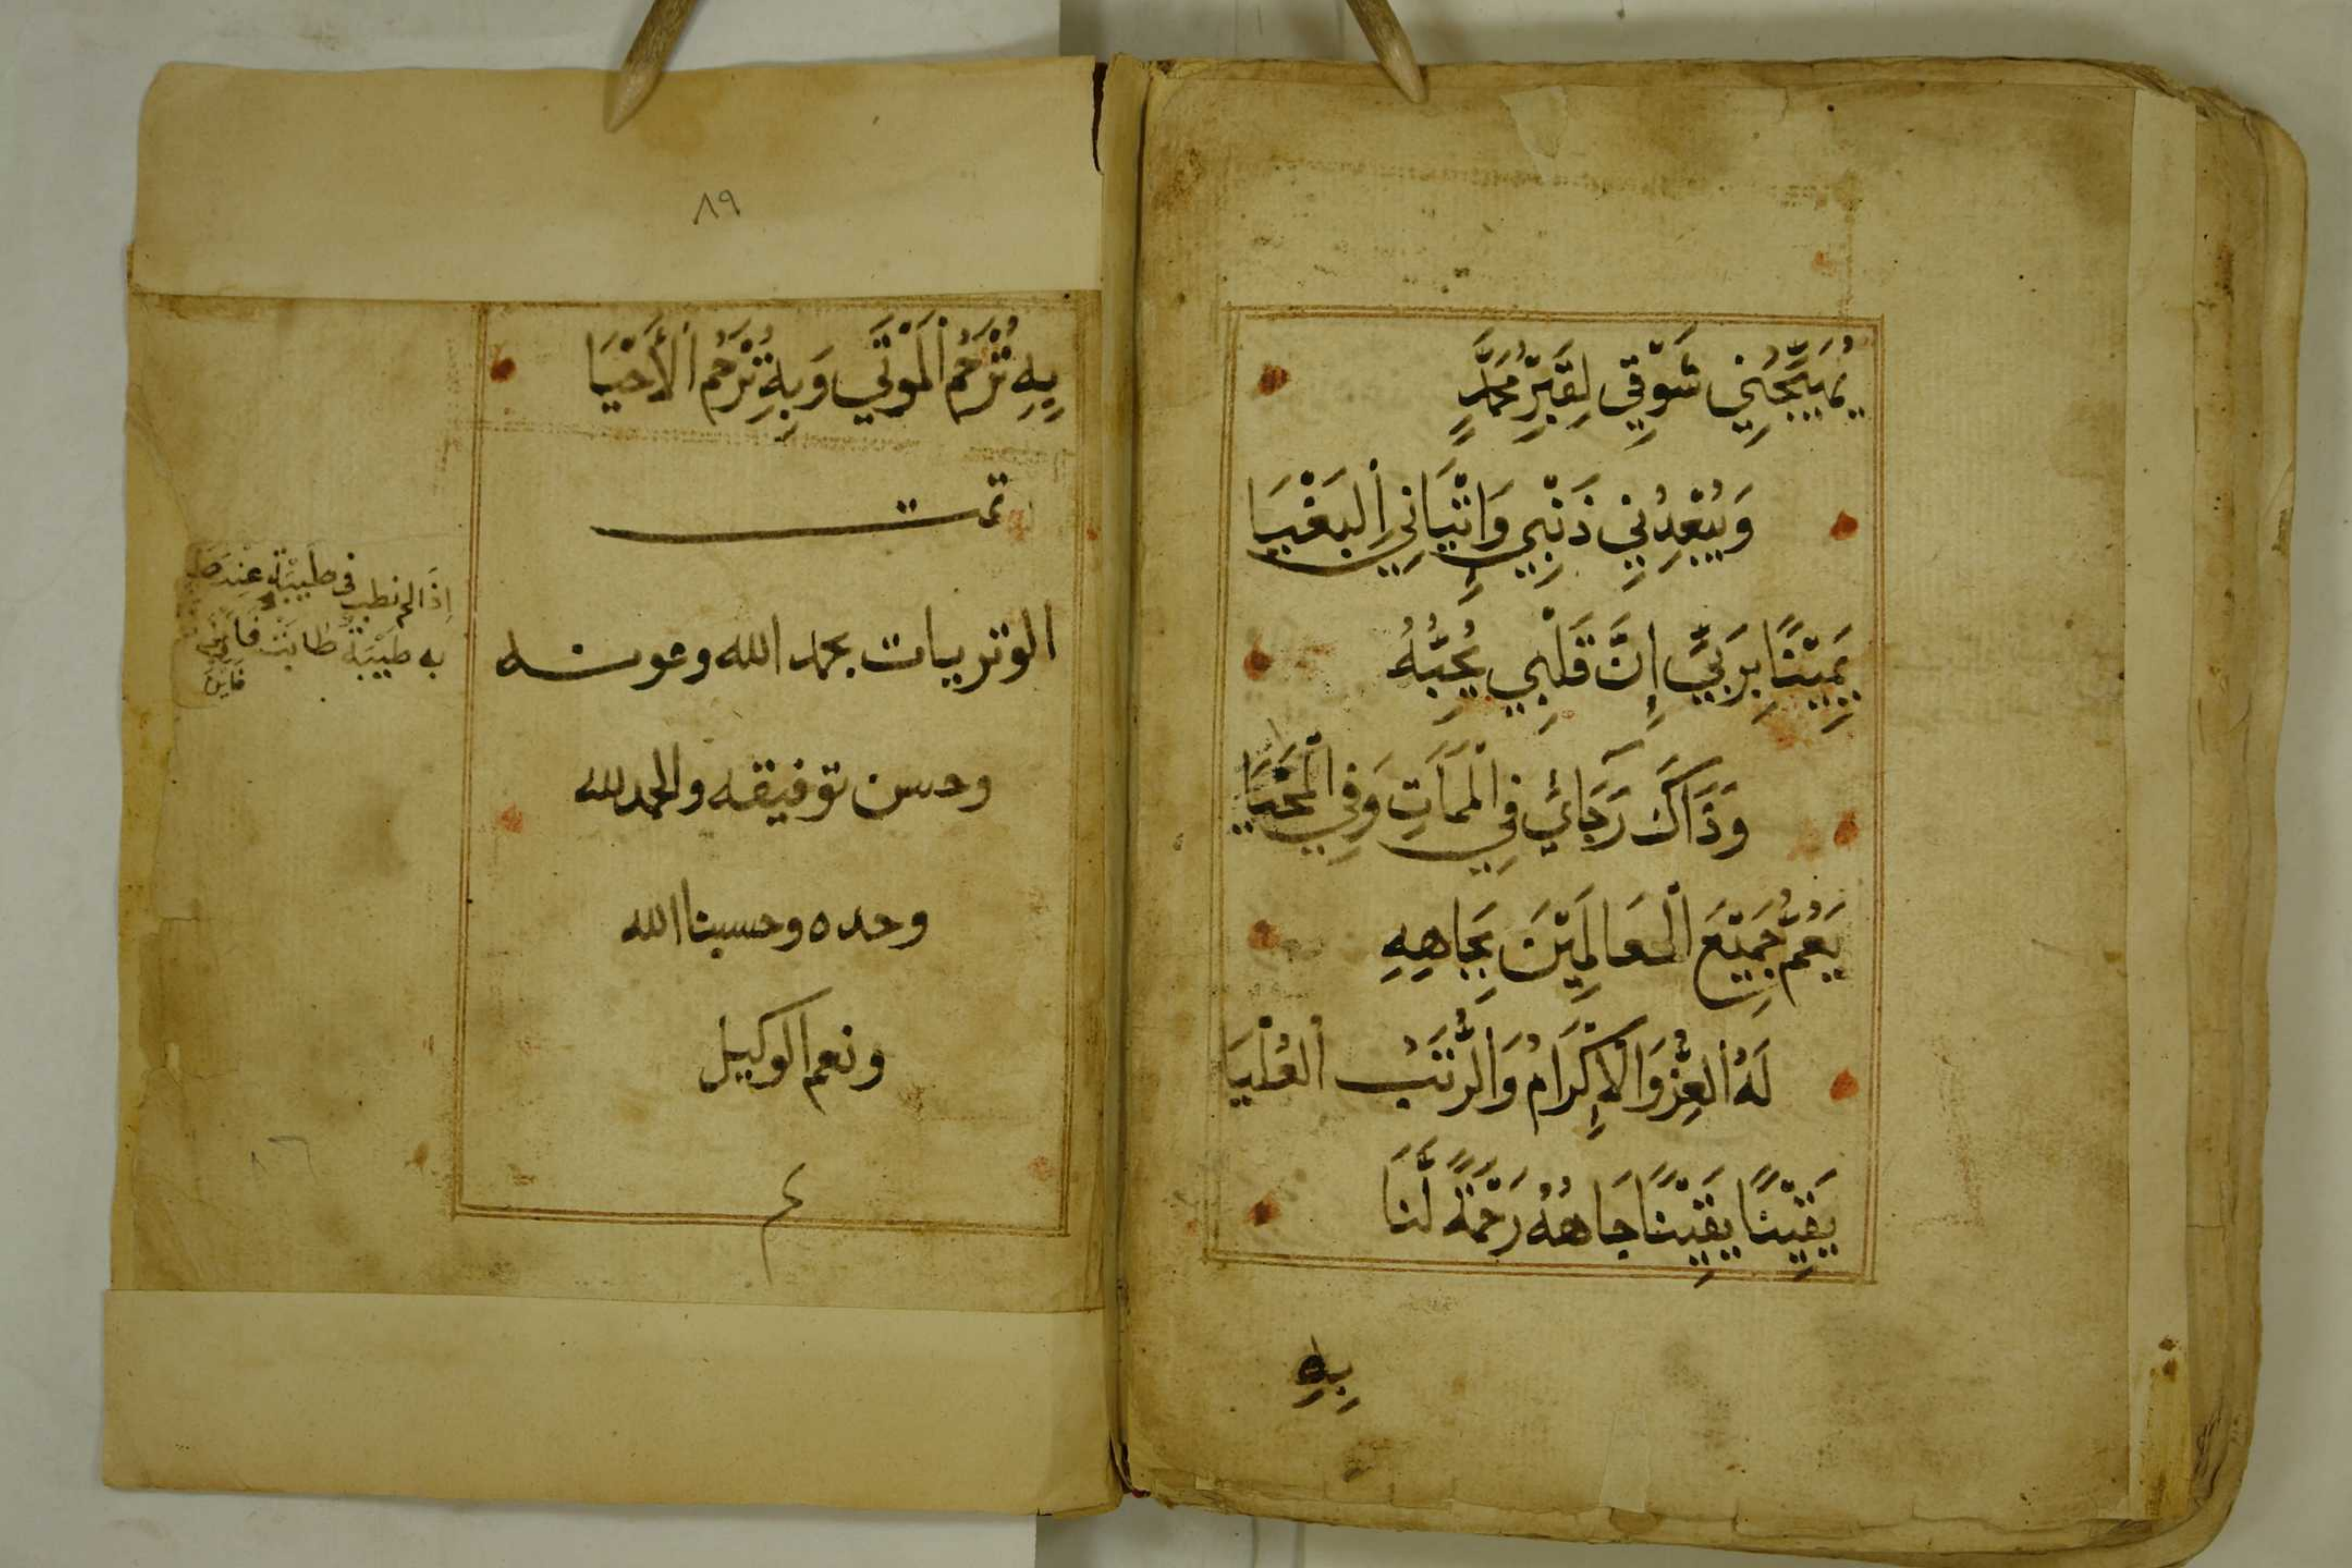 يُهَيِّجُنِي شَوْقِي لِقَبْرِ مُحَمَّدٍ
وَيُبْعِدُنِي ذَنْبِي وَإِتْيَانِيَ الْبَغْيَا
يَمِيْنًا بِرَبِّي إِنَّ قَلْبِي يُحِبُّهُ
وَذَاكَ رَجَائِي فِي الْمَمَاتِ وَفِي الْمَحْيَا
يَعُمُّ جَمِيْعَ الْعَالَمِيْنَ بِجَاهِهِ
لَهُ الْعِزُّ وَالْإِكْرَامُ وَالرُّتَبُ الْعُلْيَا
يَقِيْنًا يَقِيْنًا جَاهُهُ رَحْمَةً لَّنَا
بِهِ
٨٩
بِهِ تُرْحَمُ الْمَوْتَى وَبِهِ تُرْحَمُ الْأَحْيَا
تمت
الوتريات بحمد الله وعونه
وحسن توفيقه والحمد لله
وحده وحسبنا الله
ونعم الوكيل
م
إِذَا لم نطب في طَيْبَةٍ عِنْدَ
به طَيْبَةٌ طَابَتْ فَأَيْنَ
٨٦